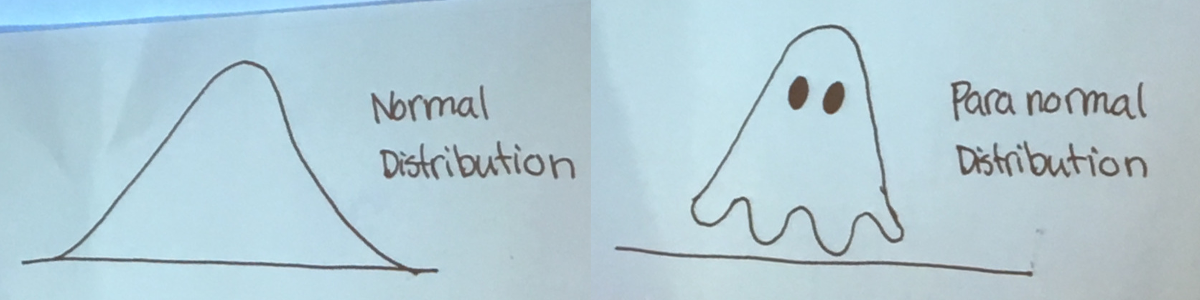 Normal
Distribution
Para normal
Distribution